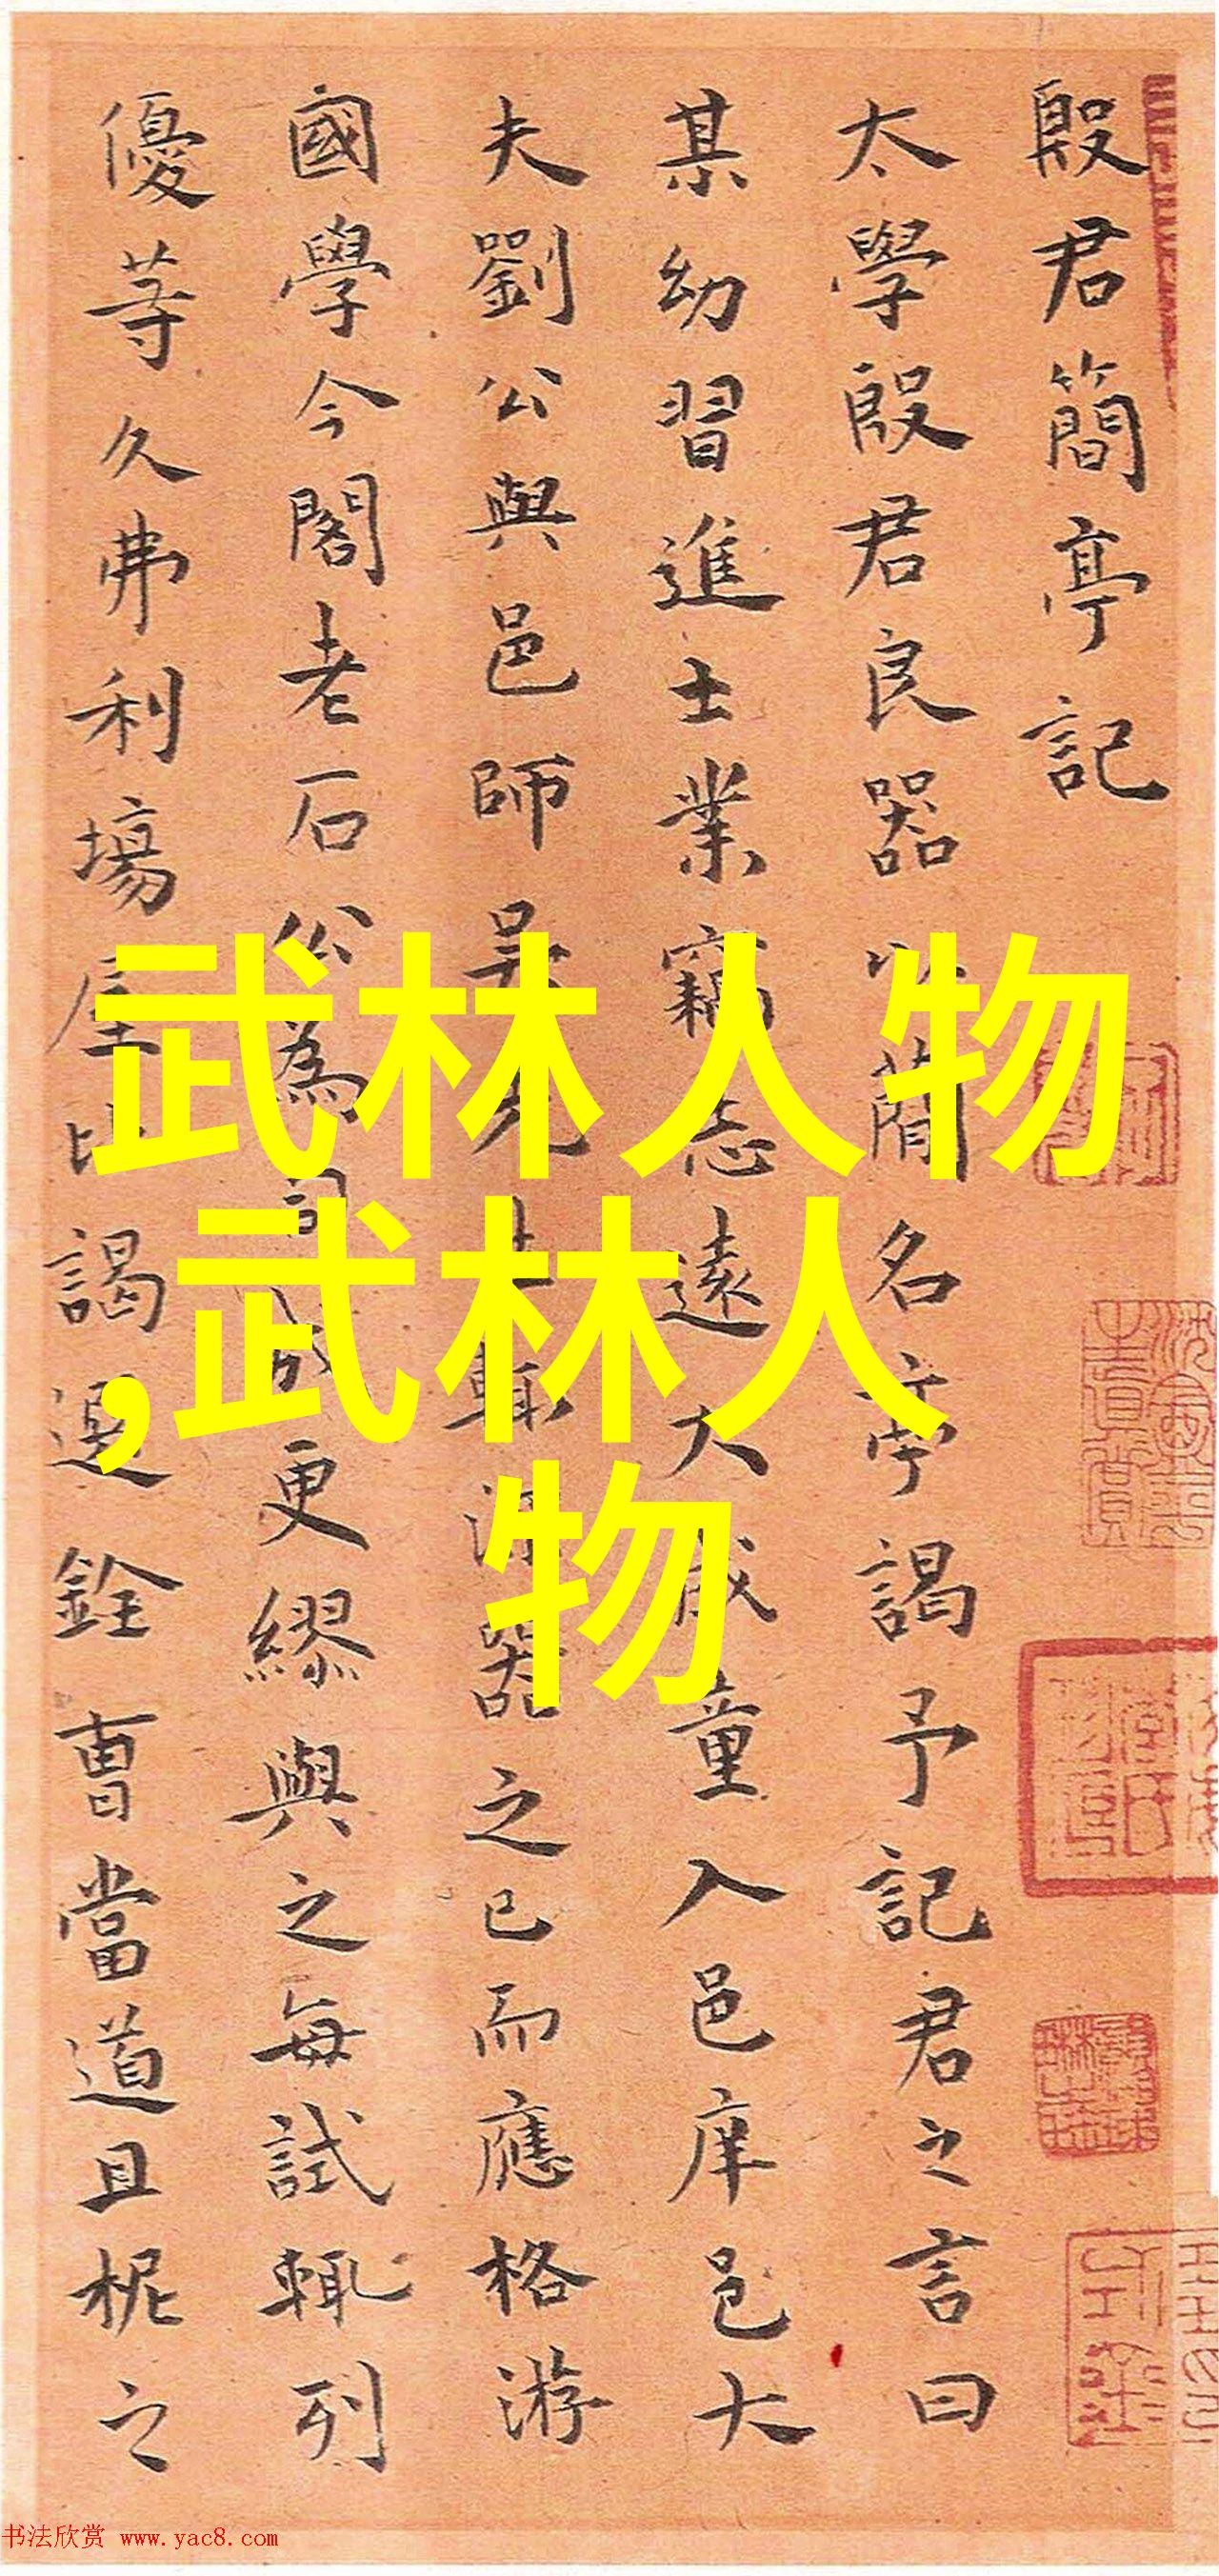 殷君簡亭記
太學殷君良器以簡名亭謁予記君之言曰
某幼習進士業竊志遠大成童入邑庠邑大
夫劉公與邑師吴先生輒深器之已而應格游
國學今閣老石公為司成更繆與之每試輒列
優等久弗利塲屋比謁選銓曹當道且柅之
武林人物
,武林人
物
书法欣赏 www.yac8.com